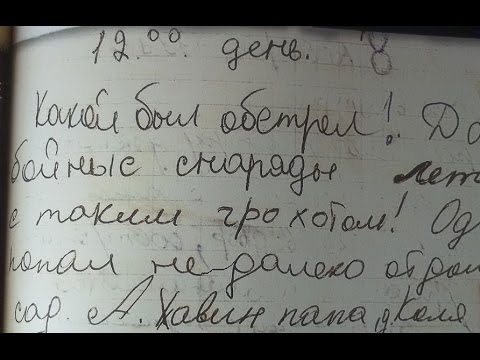 12.⁰⁰. день.
Какой был обстрел!
бойные снаряды лет
с таким грохотом! Од
попал не далеко от дом
сад. А. Хавин папа, д Коля